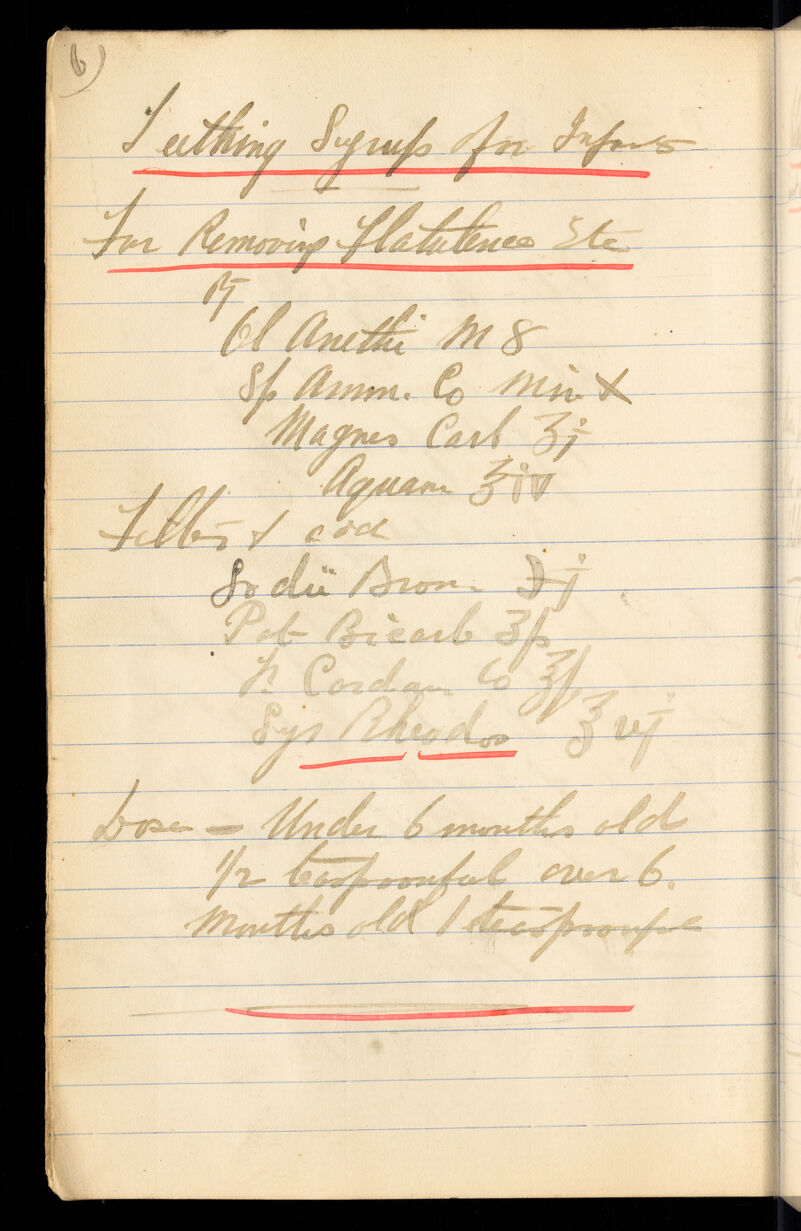 6)
Teething Syrups for Infants
For Removing Flatulence Etc
℞
Ol Anethi M 8
Sp Amm. Co Min X
Magnes Carb ʒj
Aquam ℥iv
Filter & add
Sodii Brom. ʒj
Pot Bicarb ʒſs
Tr Cardam Co ʒſs
Syr Rhoeados ℥vj
Dose – Under 6 months old
1/2 teaspoonful over 6.
Months old 1 teaspoonful